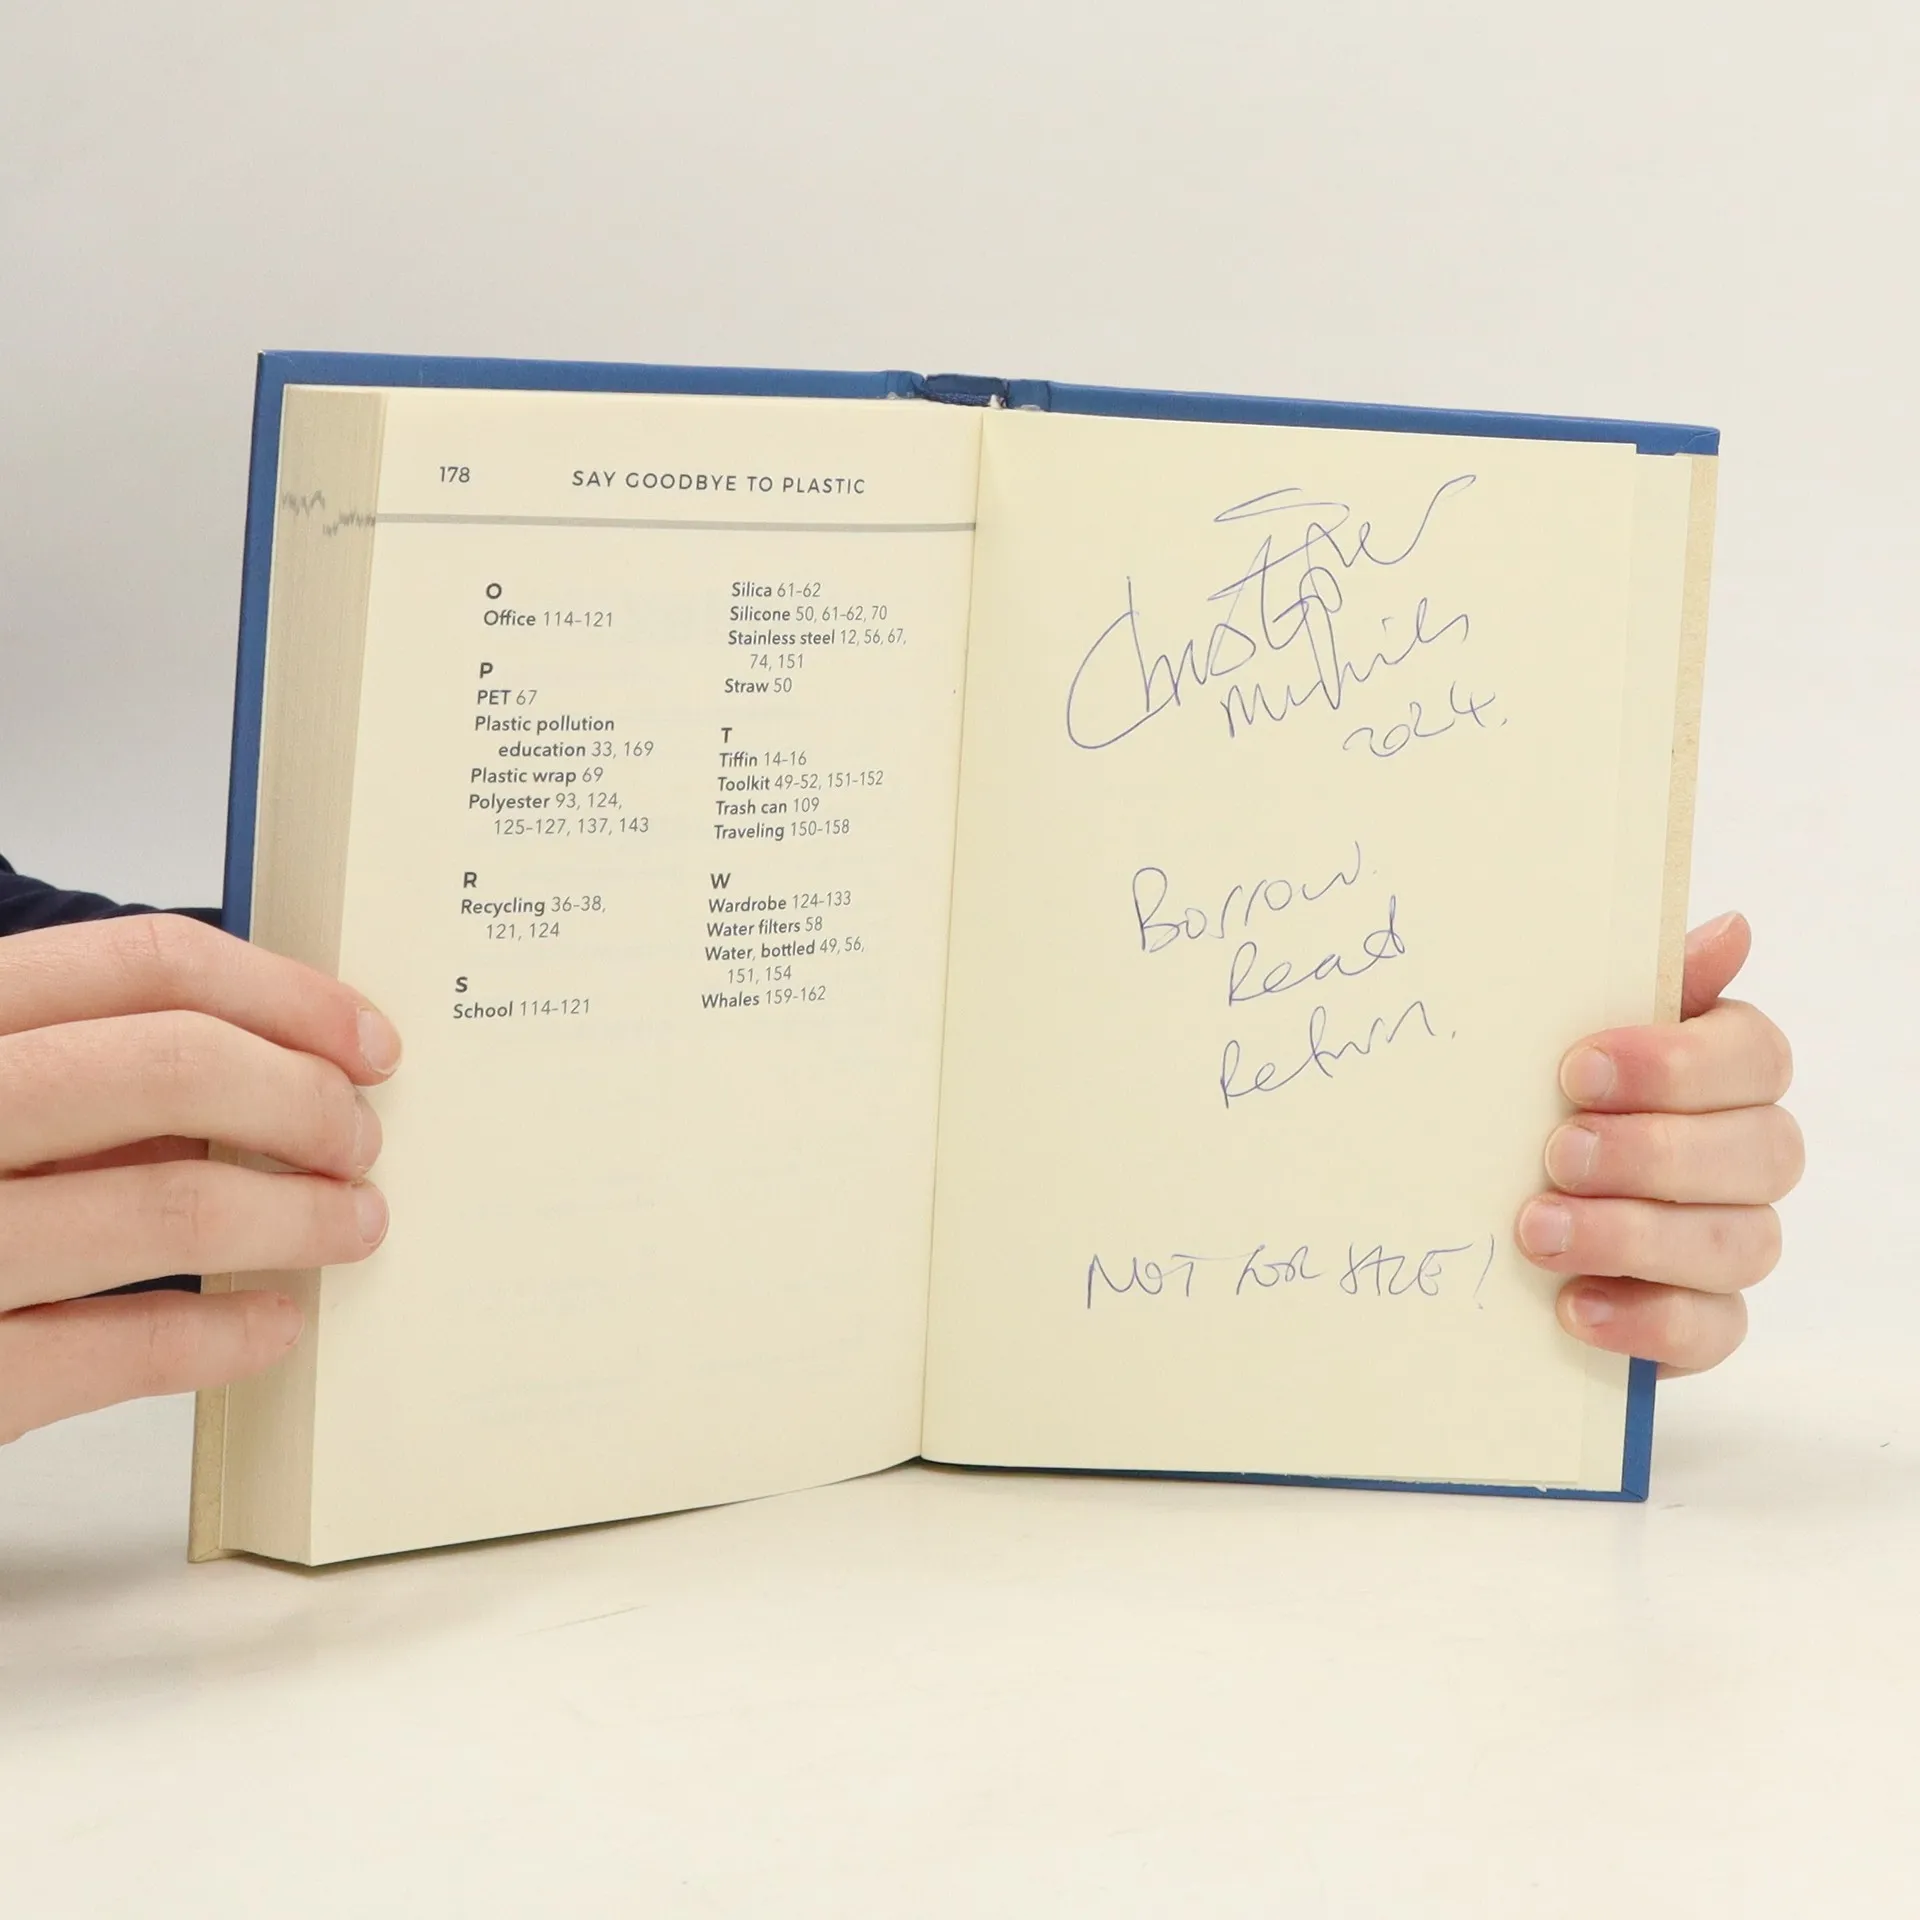 178 SAY GOODBYE TO PLASTIC
O
Office 114-121
P
PET 67
Plastic pollution
education 33, 169
Plastic wrap 69
Polyester 93, 124,
125-127, 137, 143
R
Recycling 36-38,
121, 124
S
School 114-121
Silica 61-62
Silicone 50, 61-62, 70
Stainless steel 12, 56, 67,
74, 151
Straw 50
T
Tiffin 14-16
Toolkit 49-52, 151-152
Trash can 109
Traveling 150-158
W
Wardrobe 124-133
Water filters 58
Water, bottled 49, 56,
151, 154
Whales 159-162
Christopher
2024.
Borrow.
Read
Return.
NOT FOR SALE!